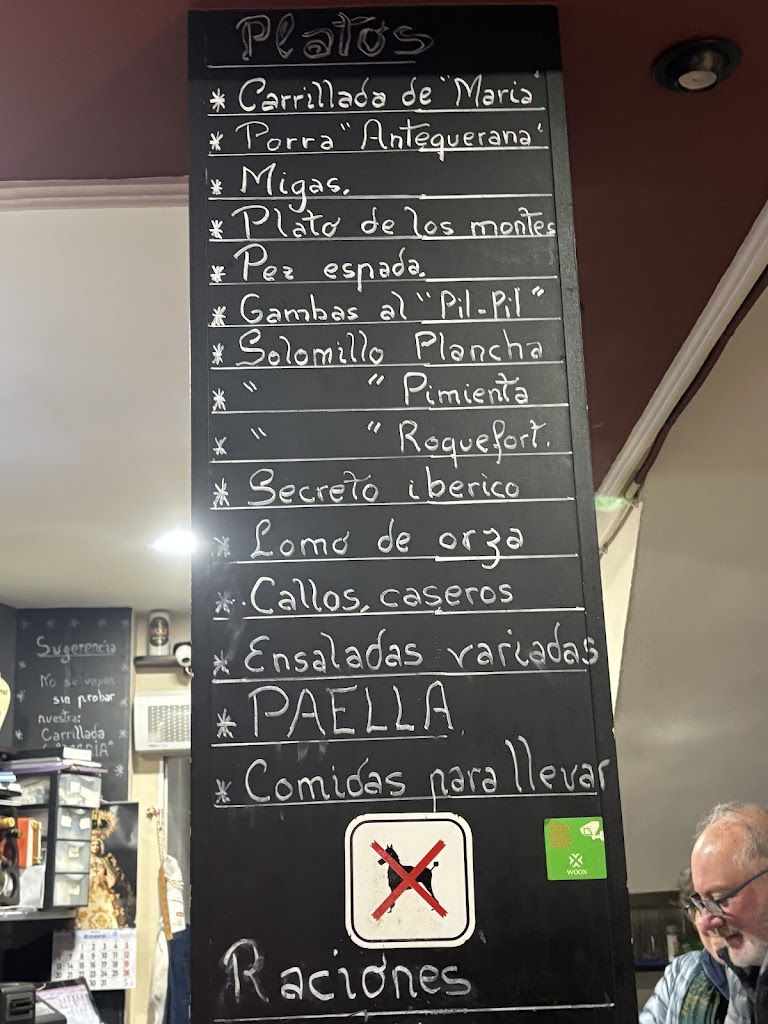 Platos
* Carrillada de "Maria"
* Porra "Antequerana"
* Migas.
* Plato de los montes
* Pez espada.
* Gambas al "Pil-Pil"
* Solomillo Plancha
* " " Pimienta
* " " Roquefort.
* Secreto iberico
* Lomo de orza
* Callos, caseros
* Ensaladas variadas
* PAELLA
* Comidas para llevar
Raciones
Sugerencia
No se vayan
sin probar
nuestra:
Carrillada
Enero
WOOX